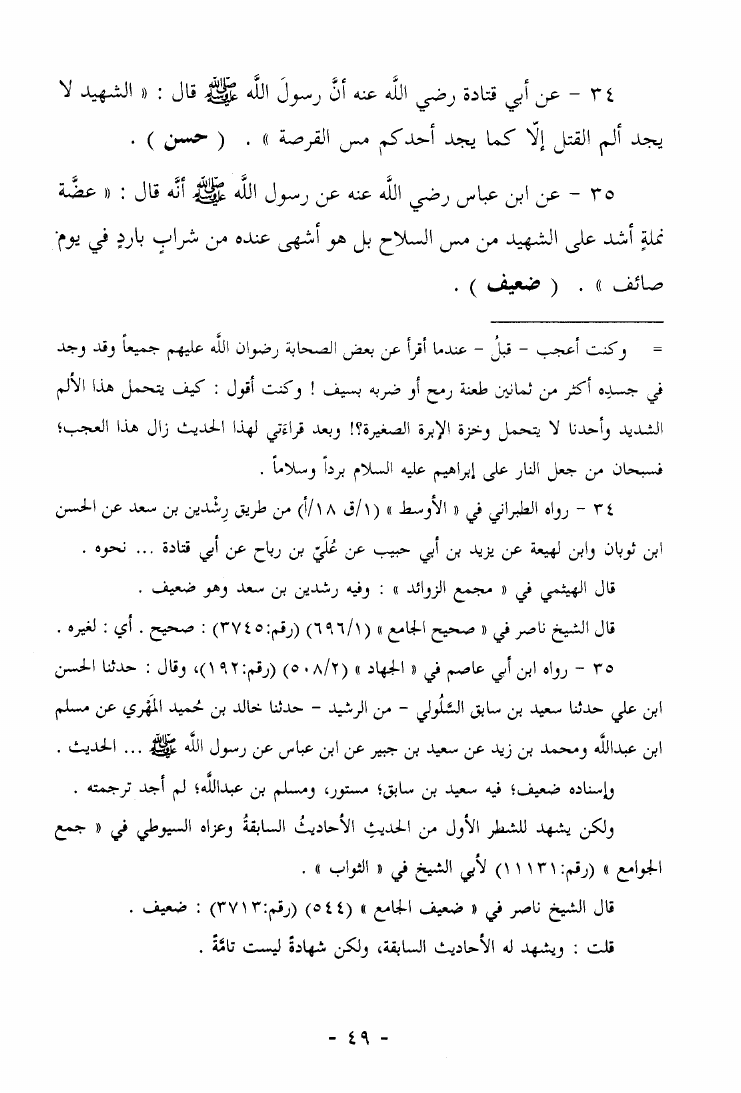 ٣٤ - عن أبي قتادة رضي اللَّه عنه أنَّ رسولَ اللَّه ﷺ قال : « الشهيد لا
يجد ألم القتل إلّا كما يجد أحدكم مس القرصة » . ( حسن ) .
٣٥ - عن ابن عباس رضي اللَّه عنه عن رسول اللَّه ﷺ أنَّه قال : « عضَّة
نملةٍ أشد على الشهيد من مس السلاح بل هو أشهى عنده من شرابٍ باردٍ في يوم
صائف » . ( ضعيف ) .
= وكنت أعجب - قبلُ - عندما أقرأ عن بعض الصحابة رضوان اللَّه عليهم جميعاً وقد وجد
في جسدِه أكثر من ثمانين طعنة رمح أو ضربه بسيف ! وكنت أقول : كيف يتحمل هذا الألم
الشديد وأحدنا لا يتحمل وخزة الإبرة الصغيرة؟! وبعد قراءَتي لهذا الحديث زال هذا العجب؛
فسبحان من جعل النار على إبراهيم عليه السلام برداً وسلاماً .
٣٤ - رواه الطبراني في « الأوسط » (١/ق ١٨/أ) من طريق رِشْدين بن سعد عن الحسن
ابن ثوبان وابن لهيعة عن يزيد بن أبي حبيب عن عُلَيّ بن رباح عن أبي قتادة ... نحوه .
قال الهيثمي في « مجمع الزوائد » : وفيه رشدين بن سعد وهو ضعيف .
قال الشيخ ناصر في « صحيح الجامع » (٦٩٦/١) (رقم:٣٧٤٥) : صحيح . أي : لغيره .
٣٥ - رواه ابن أبي عاصم في « الجهاد » (٥٠٨/٢) (رقم:١٩٢)، وقال : حدثنا الحسن
ابن علي حدثنا سعيد بن سابق السَّلُولي - من الرشيد - حدثنا خالد بن حُميد المَهْري عن مسلم
ابن عبداللَّه ومحمد بن زيد عن سعيد بن جبير عن ابن عباس عن رسول اللَّه ﷺ ... الحديث .
وإسناده ضعيف؛ فيه سعيد بن سابق؛ مستور، ومسلم بن عبداللَّه؛ لم أجد ترجمته .
ولكن يشهد للشطر الأول من الحديثِ الأحاديثُ السابقةُ وعزاه السيوطي في « جمع
الجوامع » (رقم:١١١٣١) لأبي الشيخ في « الثواب » .
قال الشيخ ناصر في « ضعيف الجامع » (٥٤٤) (رقم:٣٧١٣) : ضعيف .
قلت : ويشهد له الأحاديث السابقة، ولكن شهادةً ليست تامَّةً .
- ٤٩ -